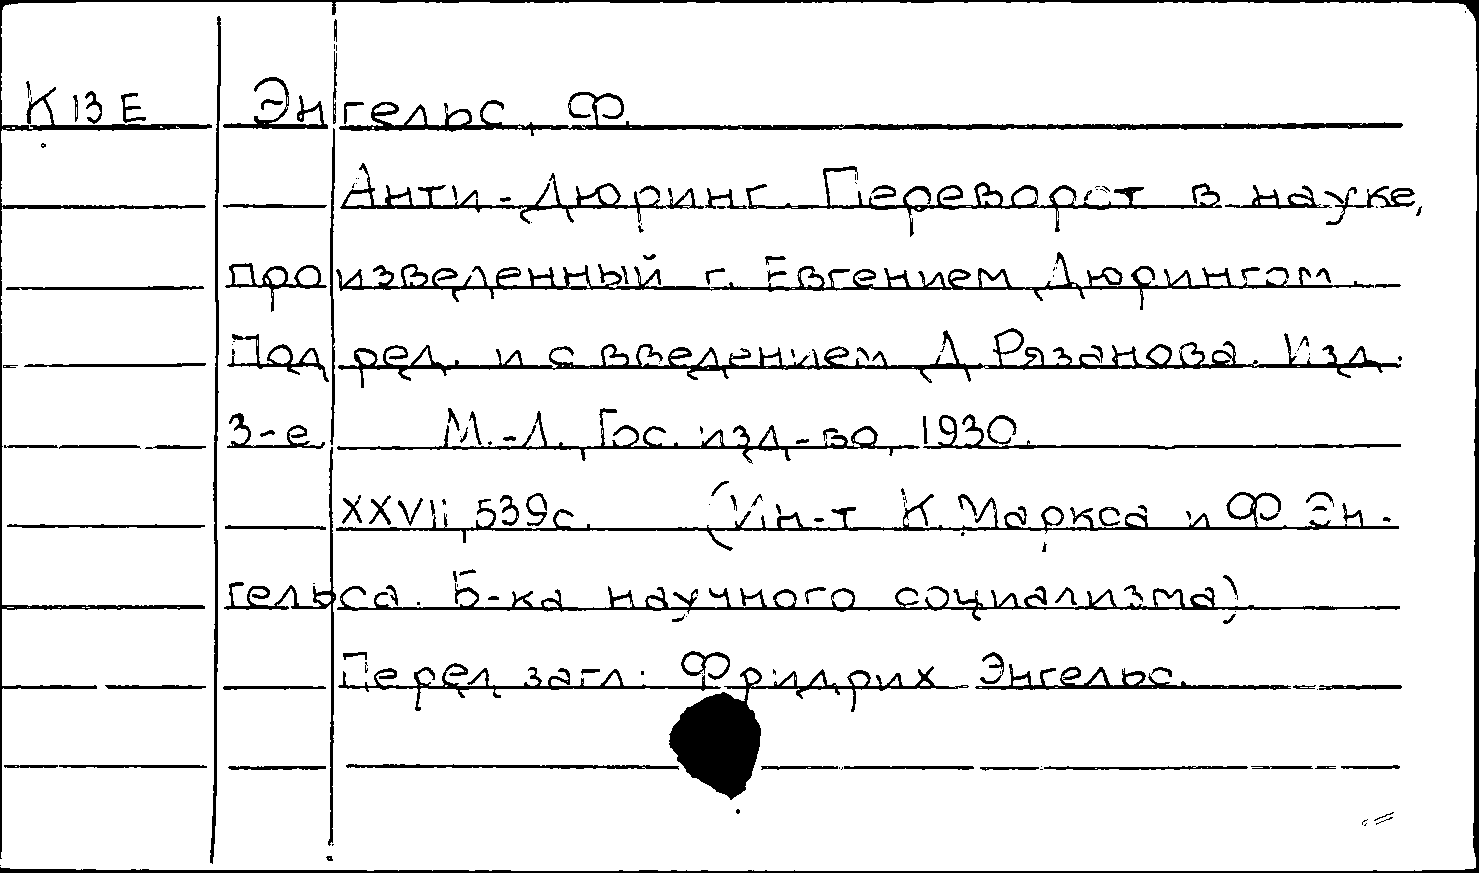 К 13 Е Энгельс, Ф.
Анти-Дюринг. Переворот в науке,
произведенный г. Евгением Дюрингом.
Под ред. и с введением Д. Рязанова. Изд.
3-е. М.-Л., Гос. изд-во, 1930.
XXVII, 539с. (Ин-т К. Маркса и Ф. Эн-
гельса. Б-ка научного социализма).
Перед загл: Фридрих Энгельс.